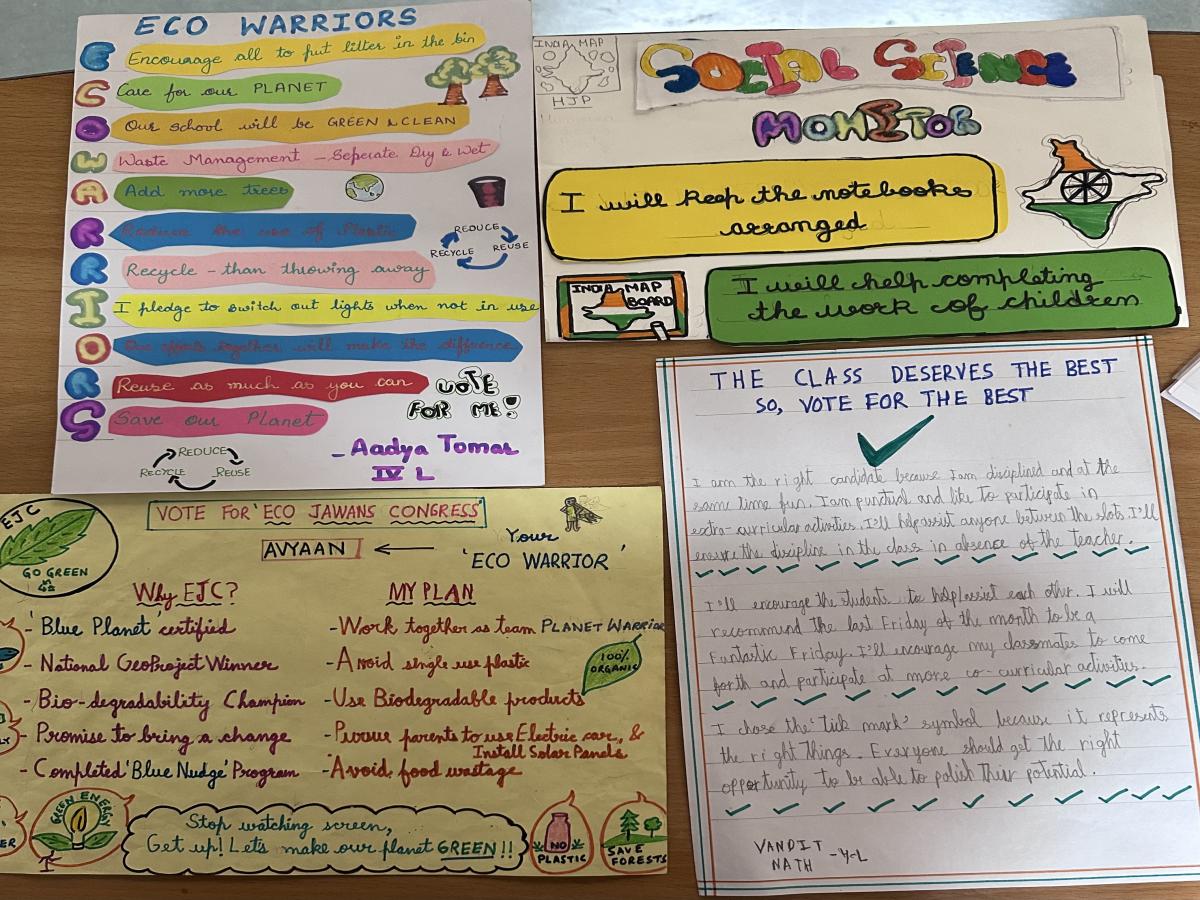 ECO WARRIORS
E Encourage all to put litter in the bin
C Care for our PLANET
O Our school will be GREEN & CLEAN
W Waste Management - Seperate Dry & Wet
A Add more trees
R Reduce the use of Plastic
R Recycle - than throwing away
I I pledge to switch out lights when not in use
O Our efforts together will make the difference
R Reuse as much as you can
S Save our Planet
REDUCE
REUSE
RECYCLE
VOTE
FOR ME!
- Aadya Tomar
IV L
REDUCE
RECYCLE REUSE
INDIA MAP
HJP
SOCIAL SCIENCE
MONITOR
I will keep the notebooks
arranged
INDIA MAP
BOARD
I weill help completing
the work of children
VOTE FOR 'ECO JAWANS CONGRESS'
EJC
GO GREEN
AVYAAN ← Your
'ECO WARRIOR'
Why EJC?
- 'Blue Planet' certified
- National GeoProject Winner
- Bio-degradability Champion
- Promise to bring a change
- Completed 'Blue Nudge' Program
MY PLAN
- Work together as team PLANET WARRIOR
- Avoid single use plastic
- Use Biodegradable products
- Pursue parents to use Electric car, &
Install Solar Panels
- Avoid food wastage
100%
ORGANIC
GREEN ENERGY
Stop watching screen,
Get up! Let's make our planet GREEN!!
NO
PLASTIC
SAVE
FORESTS
THE CLASS DESERVES THE BEST
SO, VOTE FOR THE BEST
I am the right candidate because I am disciplined and at the
same time fun. I am punctual and like to participate in
extra-curricular activities. I'll help assist anyone between the slots. I'll
ensure the discipline in the class in absence of the teacher.
I'll encourage the students to help/assist each other. I will
recommend the last Friday of the month to be a
Funtastic Friday. I'll encourage my classmates to come
forth and participate at more co-curricular activities.
I chose the 'tick mark' symbol because it represents
the right things. Everyone should get the right
opportunity to be able to polish their potential.
VANDIT
NATH